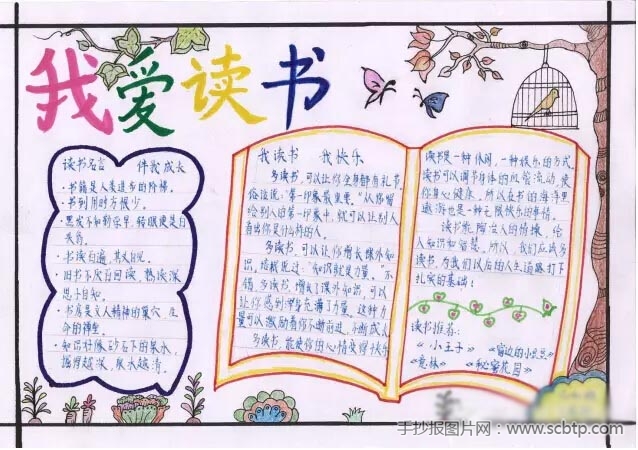 我爱读书
读书名言 伴我成长
·书籍是人类进步的阶梯。
·书到用时方恨少。
·黑发不知勤学早,转眼便是白
头翁。
·书读百遍,其义自见。
·旧书不厌百回读,熟读深
思子自知。
·书房是文人精神的巢穴,生
命的禅堂。
·知识好像砂石下的泉水,
掘得越深,泉水越清。
我读书 我快乐
多读书,可以让你全身都有礼节。
俗话说:"第一印象最重要。"从你留
给别人的第一印象中,就可以让别人
看出你是什么样的人。
多读书,可以让你增长课外知
识,培根说过:"知识就是力量。"不
错,多读书,增长了课外知识,可以
让你感到浑身充满了力量。这种力
量可以激励着你不断前进,不断成长
多读书,能使你的心情变得快乐
读书是一种休闲,一种娱乐的方式。
读书可以调节身体的血管流动,使
你身心健康。所以在书的海洋里
遨游也是一种无限快乐的事情。
读书能陶冶人的情操,给
人知识和智慧。所以,我们应该多
读书,为我们以后的人生道路打下
扎实的基础!
读书推荐:
《小王子》 《窗边的小豆豆》
《意林》 《秘密花园》
手抄报图片网:www.scbtp.com